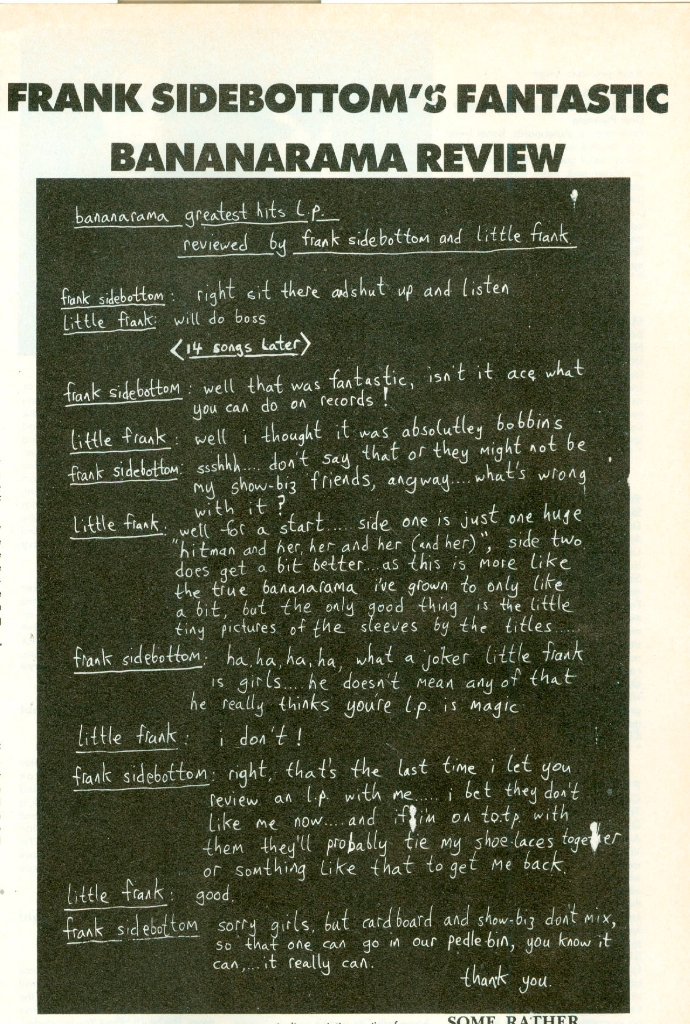 FRANK SIDEBOTTOM'S FANTASTIC
BANANARAMA REVIEW
bananarama greatest hits L.P.
reviewed by frank sidebottom and little frank
frank sidebottom: right sit there adshut up and listen
little frank: will do boss
<14 songs later>
frank sidebottom: well that was fantastic, isn't it ace what
you can do on records!
little frank: well i thought it was absolutley bobbins
frank sidebottom: ssshhh.... don't say that or they might not be
my show-biz friends, anyway.... what's wrong
with it?
little frank: well for a start.... side one is just one huge
"hitman and her, her and her (and her)", side two
does get a bit better... as this is more like
the true bananarama i've grown to only like
a bit, but the only good thing is the little
tiny pictures of the sleeves by the titles.....
frank sidebottom: ha, ha, ha, ha, what a joker little frank
is girls.... he doesn't mean any of that
he really thinks youre l.p. is magic
little frank: i don't!
frank sidebottom: right, that's the last time i let you
review an l.p. with me..... i bet they don't
like me now.... and if i'm on t.o.t.p. with
them they'll probably tie my shoe-laces together
or somthing like that to get me back.
little frank: good.
frank sidebottom sorry girls, but cardboard and show-biz don't mix,
so that one can go in our pedle bin, you know it
can,... it really can.
thank you.
SOME RATHER